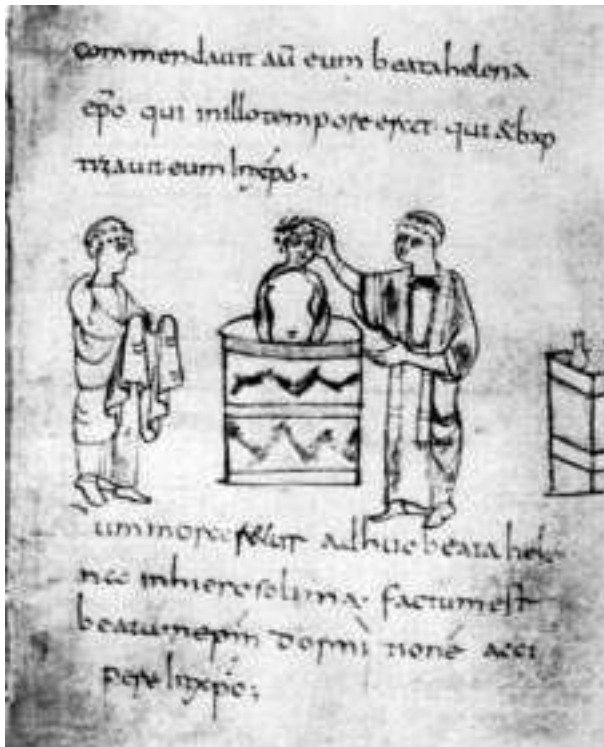 commendauit aũ eum beata helena
ep̃o qui in illo tempore erat qui & bap
tizauit eum in xp̃o.
um moraretur adhuc beata hele
na in hierosolima factum est
beatum ep̃m dormitionẽ acci
pere in xp̃o;